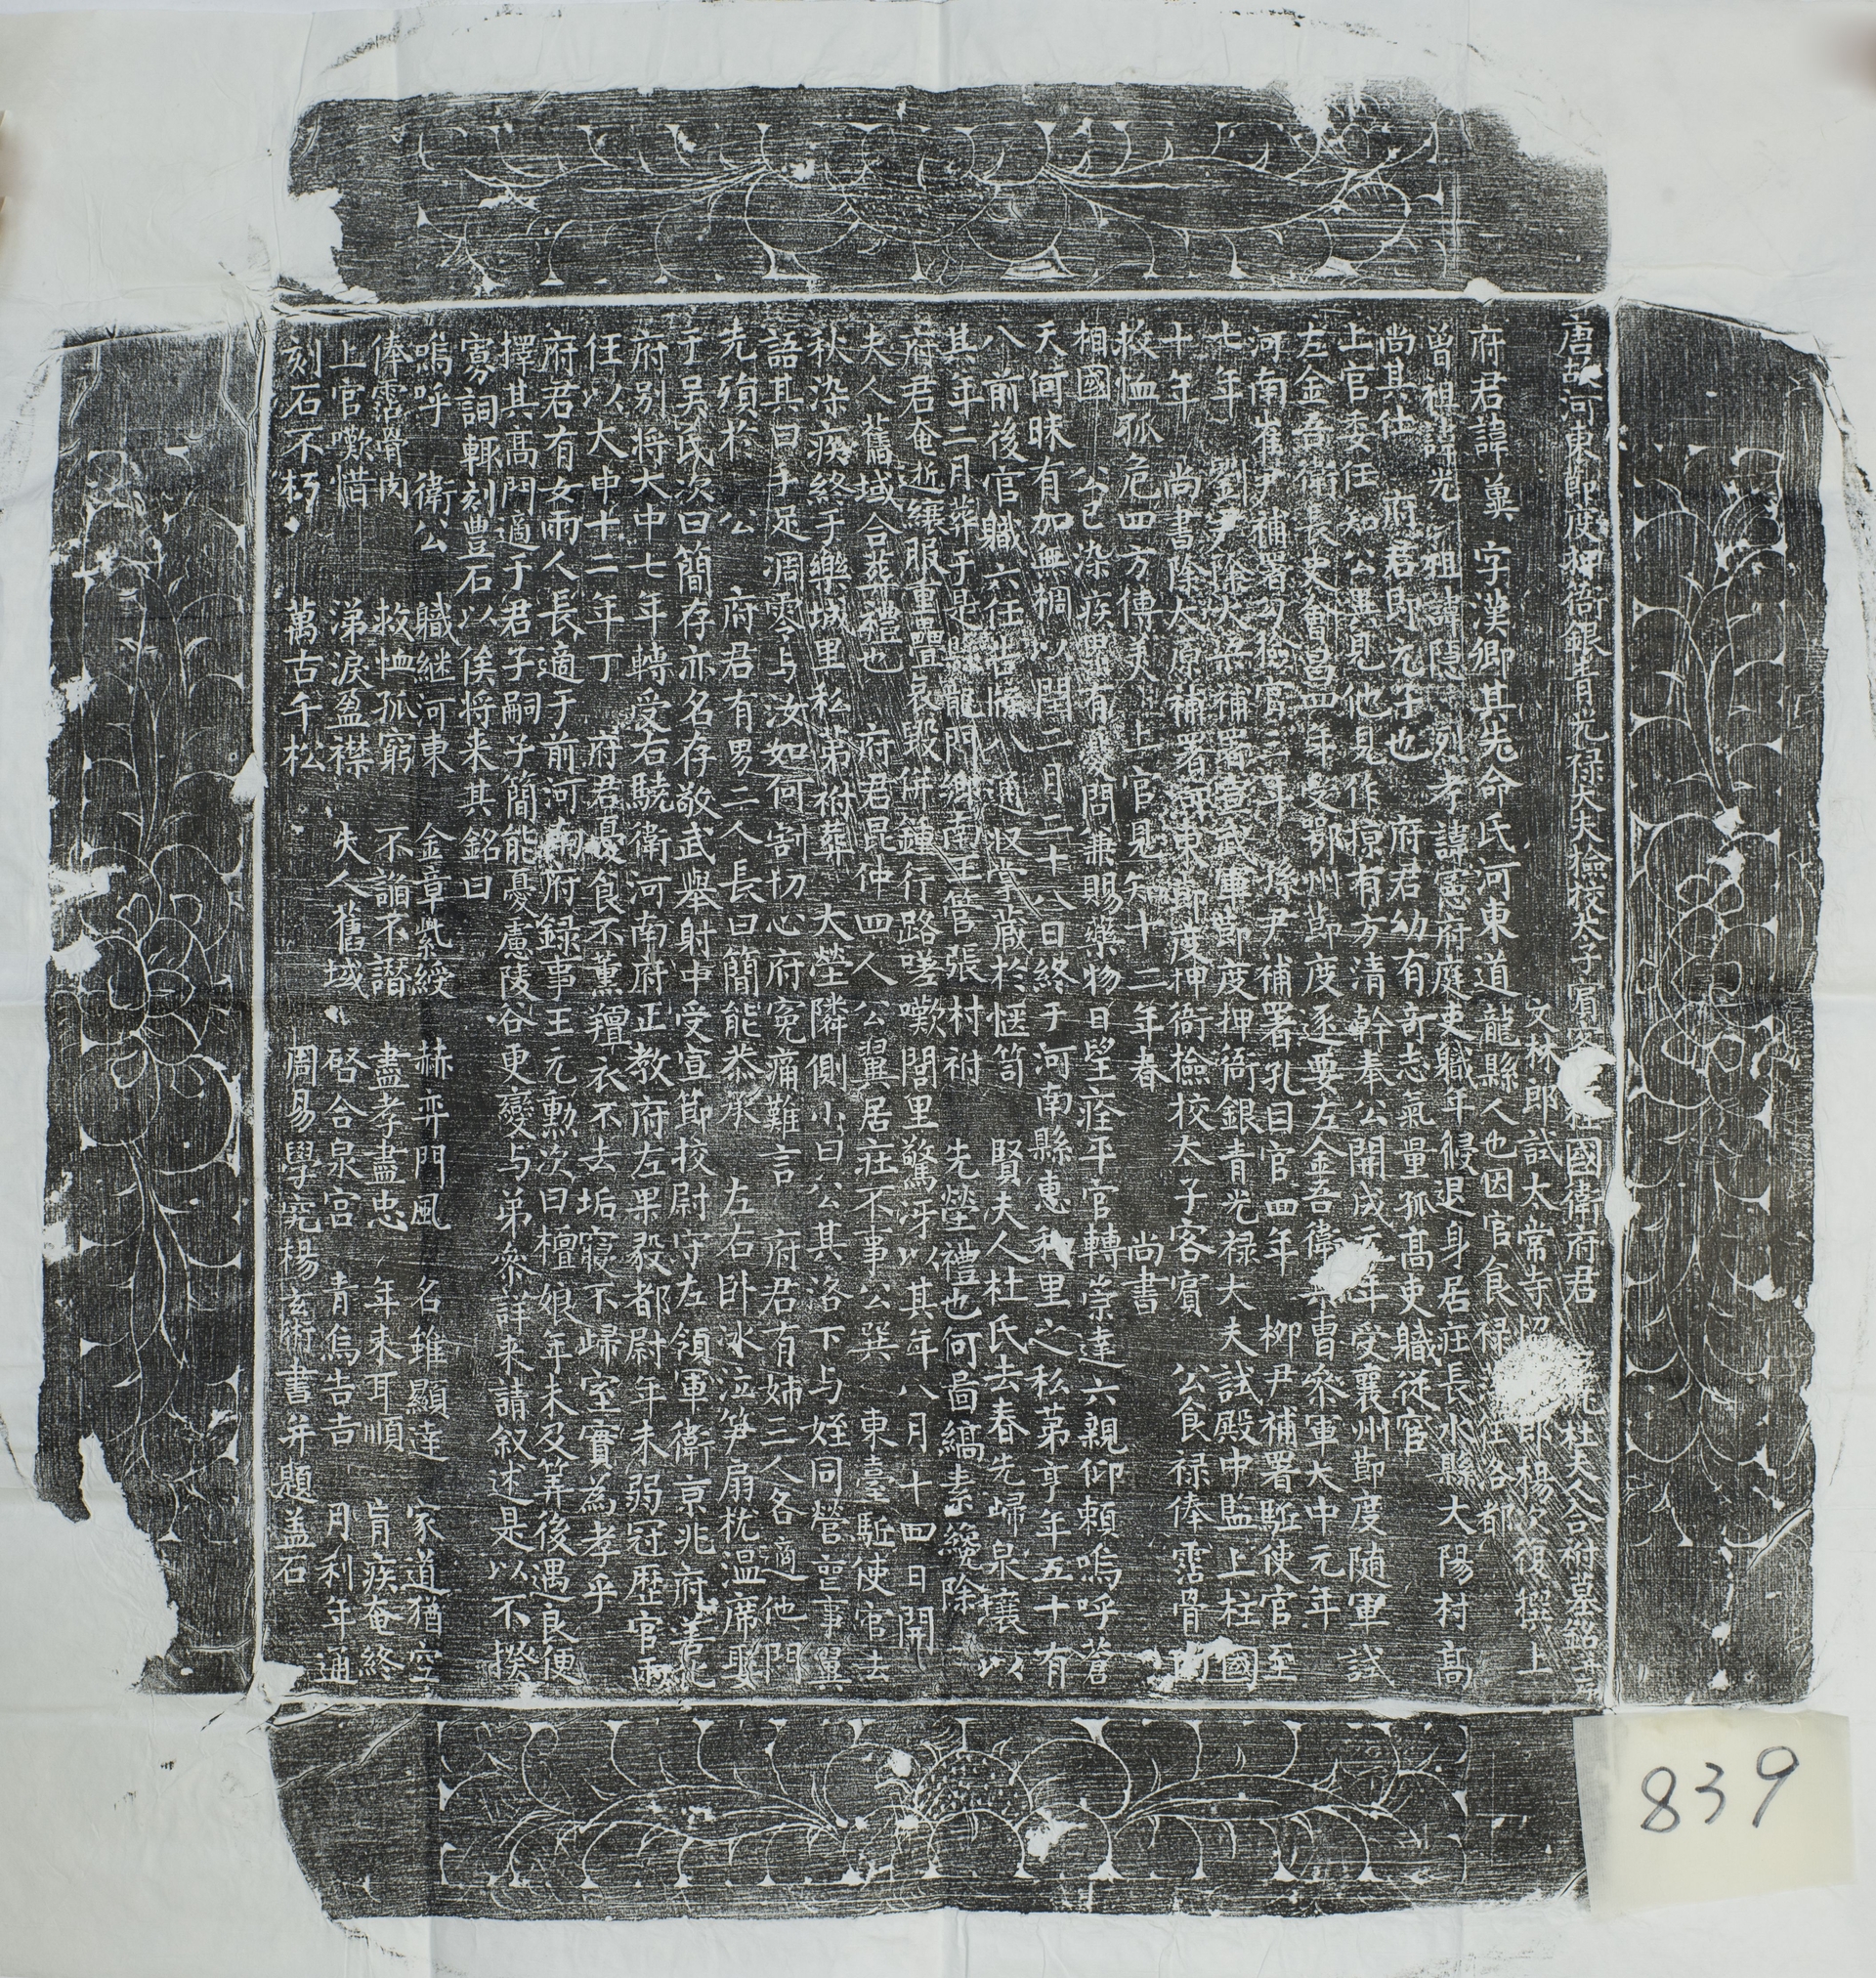 唐故河東節度押衙銀青光禄大夫撿校太子賓客上柱國衛府君夫人杜夫人合祔墓銘并序
文林郎試太常寺郎楊復撰上
府君諱 字漢卿其先命氏河東道龍縣人也因官食禄洛都
曾祖諱光 祖諱隱 烈考諱憲府庭吏職年侵退身居庄長水縣大陽村高
尚其仕 府君即元子也 府君幼有奇志氣量孤高吏職從官
上官委任知公異見他見作掾有方清幹奉公開成年受襄州節度随軍試
左金吾衛長史會昌四年受鄧州節度逐要左金吾衛曹叅軍大中元年
河南崔尹補署孔 官三年孫尹補署孔目官四年 柳尹補署駈使官至
七年 劉尹除大梁補署宣武軍節度押衙銀青光禄大夫試殿中監上柱國
十年 尚書除太原補署河東節度押衙檢校太子客賔 公食禄俸霑骨肉
救恤孤危四方傳美上官見知十二年春 尚書
相國 公已染疾累有憂問兼賜藥物日望痊平官轉崇達六親仰賴嗚呼蒼
天何昧有加無櫚以閏二月二十八日終于河南縣惠和里之私第享年五十有
八前後官職六任告牒八通收掌蔵於愜笥 賢夫人杜氏去春先歸泉壤以
其年二月葬于是縣龍門鄉南王管張村祔 先塋禮也何啚縞素纔除
府君奄逝縗服重疊哀毀併鍾行路嗟嘆閭里驚訝以其年八月十四日開
夫人舊域合葬禮也 府君昆仲四人公翼居庄不事公巽 東臺駈使官去
秋染疾終于樂城里私弟祔葬 大塋隣側小曰公其洛下与姪同營䘮事翼
語其曰手足凋零与汝如何割切心府寃痛難言 府君有姊三人各適他門
先殯於 公 府君有男二人長曰簡能恭承 左右卧冰泣笋扇枕温席娶
于吴氏次曰簡存亦名存敬武舉射中受宣節校尉守左領軍衛京兆府善化
府別将大中七年轉受右驍衛河南府正教府左果毅都尉年未弱冠歴官兩
任以大中十二年丁 府君憂食不薫羶衣不去垢寢不歸室實為孝乎
府君有女兩人長適于前河南府録事王元勳次曰檀娘年未及笄後遇良便
擇其髙門適于君子嗣子簡能憂慮陵谷更變与弟叅詳来請叙述是以不揆
寡詞輙刻豊石以俟将来其銘曰
嗚呼 衛公 職継河東 金章紫綬 赫弈門風 名雖顯達 家道猶空
俸霑骨肉 救恤孤窮 不諂不譖 盡孝盡忠 年来耳順 肓疾奄終
上官嗽惜 涕淚盈襟 夫人舊域 啓合泉宫 青烏告吉 月利年通
刻石不朽 萬古千松 周易學究楊玄術書并題盖石
839